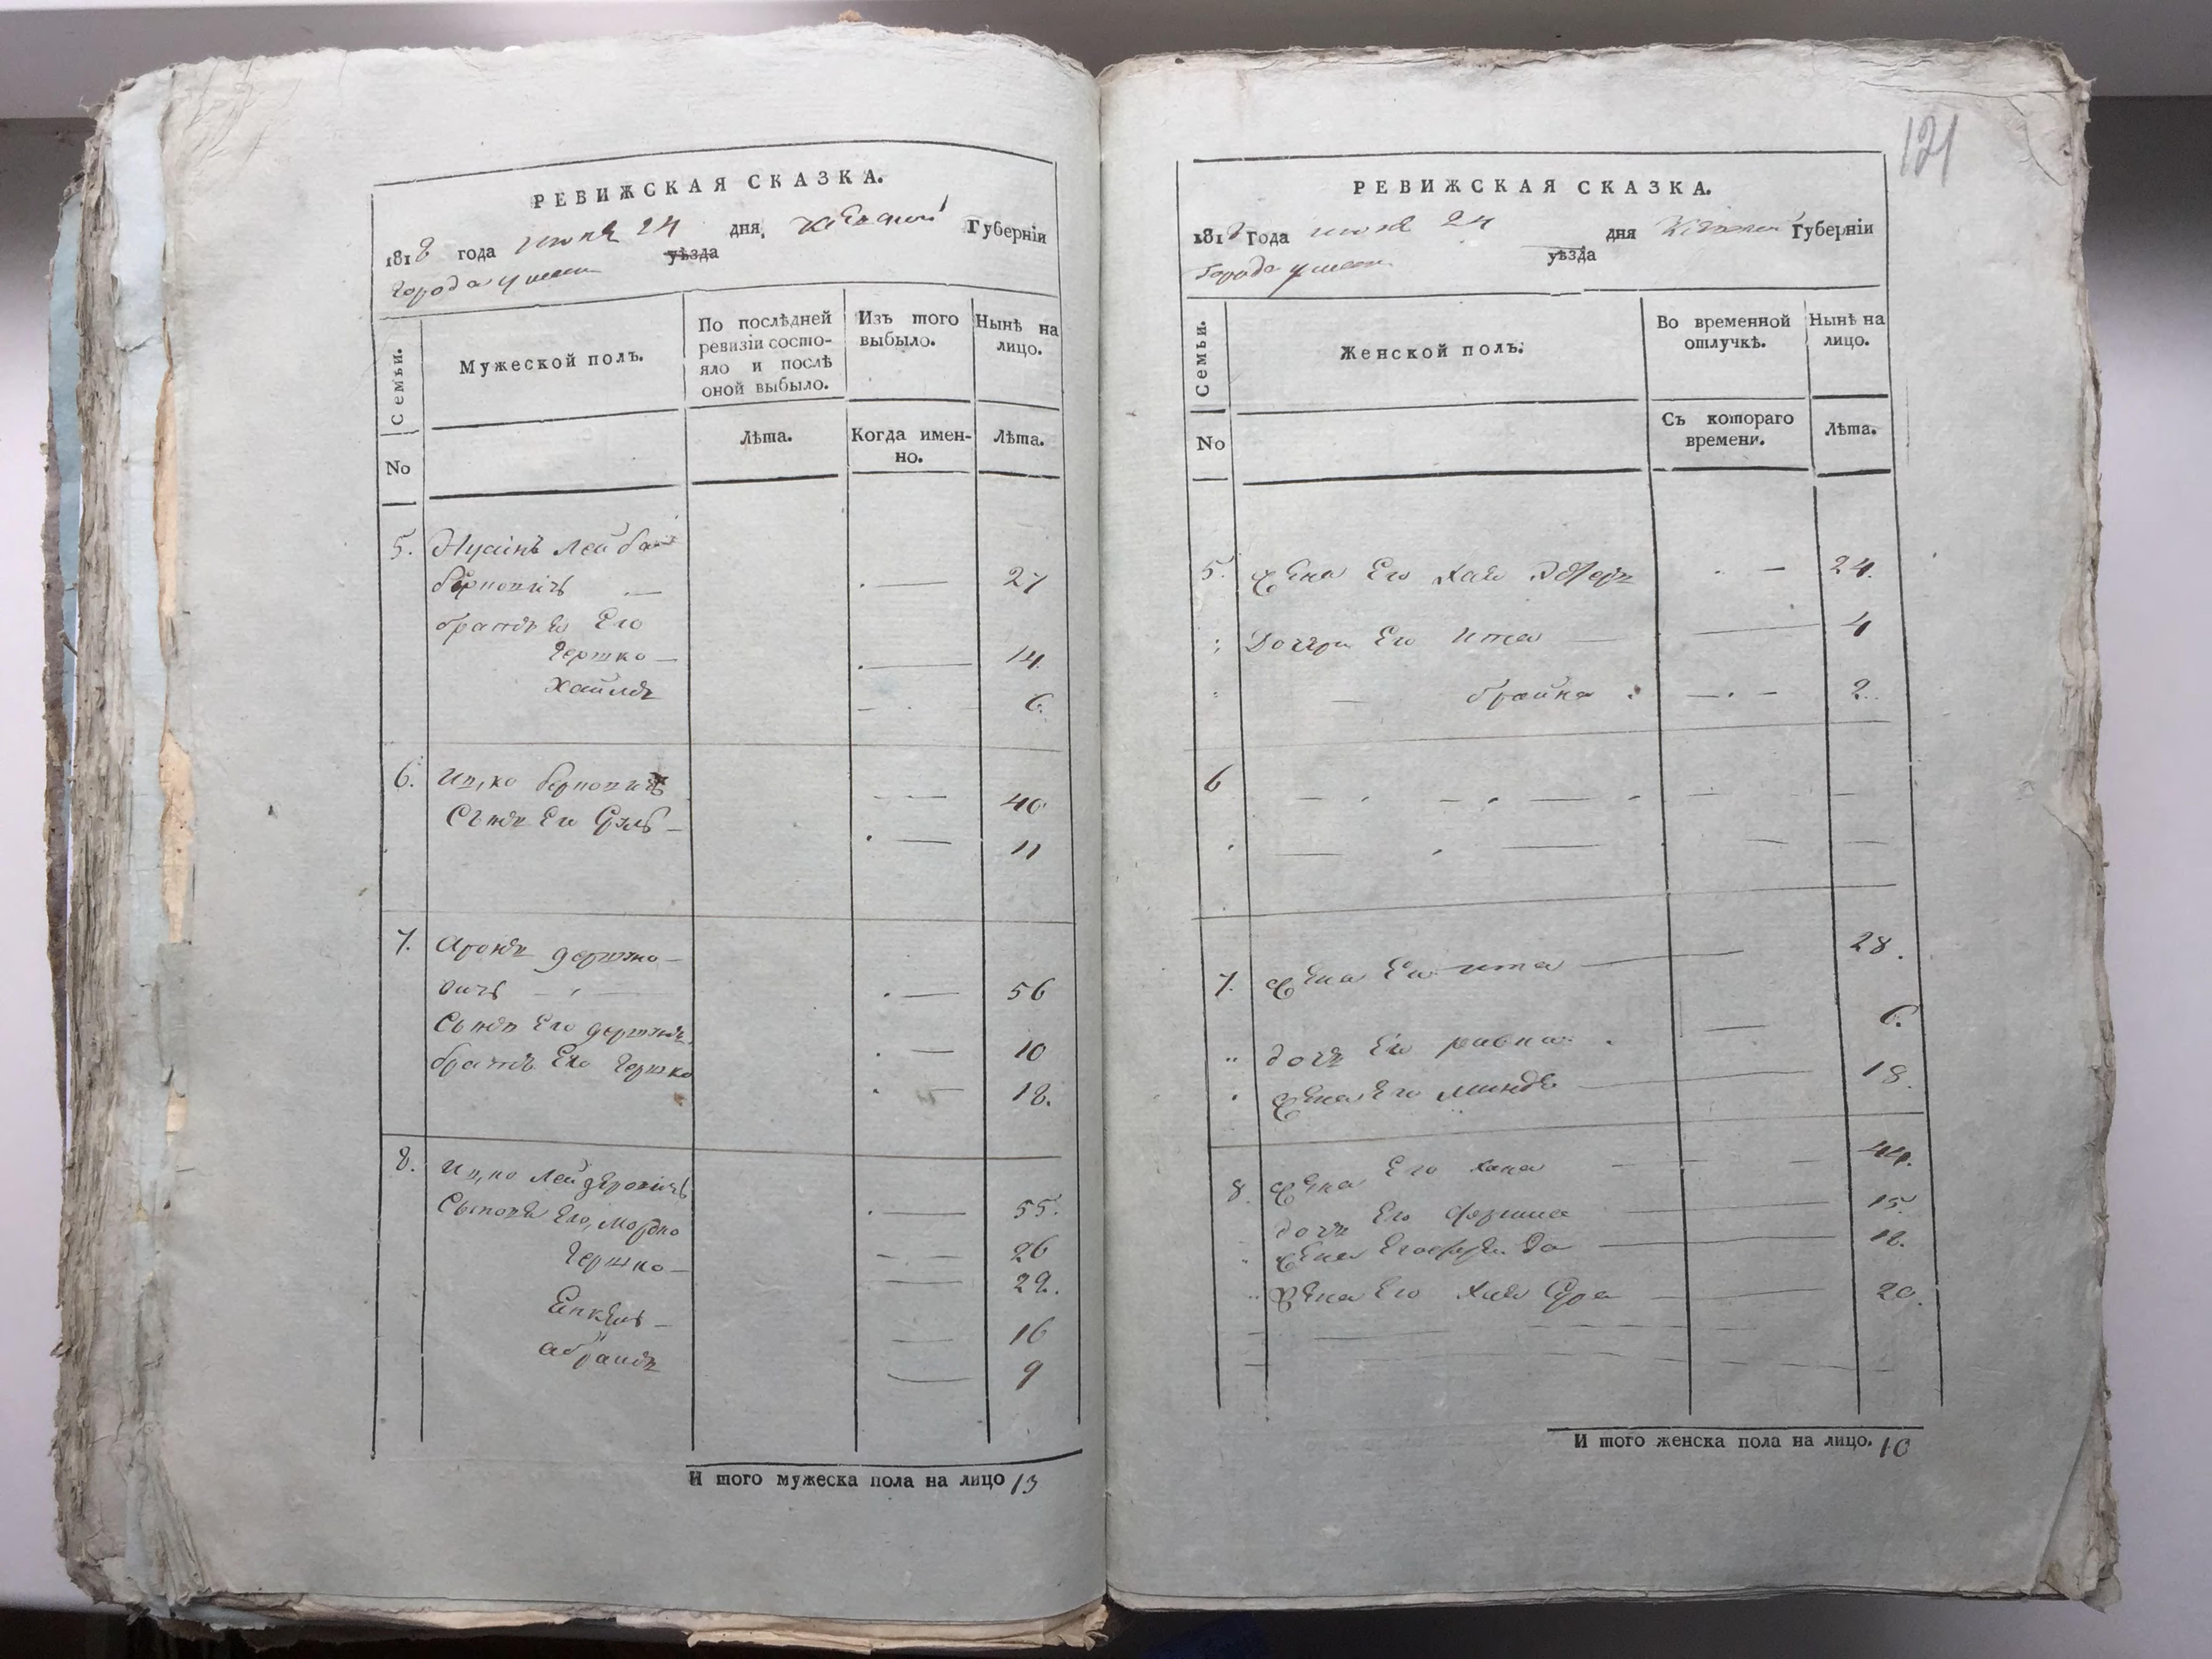 РЕВИЖСКАЯ СКАЗКА.
1818 года июня 24 дня, Киевской Губерніи
города умани уѣзда
Семьи.
Мужеской полъ.
По послѣдней ревизіи состо-
яло и послѣ
оной выбыло.
Изъ того
выбыло.
Нынѣ на
лицо.
No
Лѣта.
Когда имен-
но.
Лѣта.
5. Лейба
27
братья Его
Гершко — 14.
Хаимъ 6.
6. Ицко 40
Сынъ Его 11
7. Аронъ
вичъ — 56
Сынъ Его 10
братъ Его Гершко 18.
8. Ицко Лейзеровичъ 55.
Сыновя Его, Морко 26
Гершко — 22.
16
абрамъ 9
И того мужеска пола на лицо 13
121
РЕВИЖСКАЯ СКАЗКА.
1818 Года июня 24 дня Киевской Губерніи
города умани уѣзда
Семьи.
Женской полъ.
Во временной
отлучкѣ.
Нынѣ на
лицо.
No
Съ котораго
времени.
Лѣта.
5. Жена Его Хая 24.
Дочери Его Ита — 4
— брайна 2
6
7. Жена Его ита — 28.
дочь Его ривка 6.
Жена Его Миндя — 18.
8 Жена Его Хана 44.
дочь Его 15.
Жена 18.
Жена Его Хая Сура 20.
И того женска пола на лицо. 10